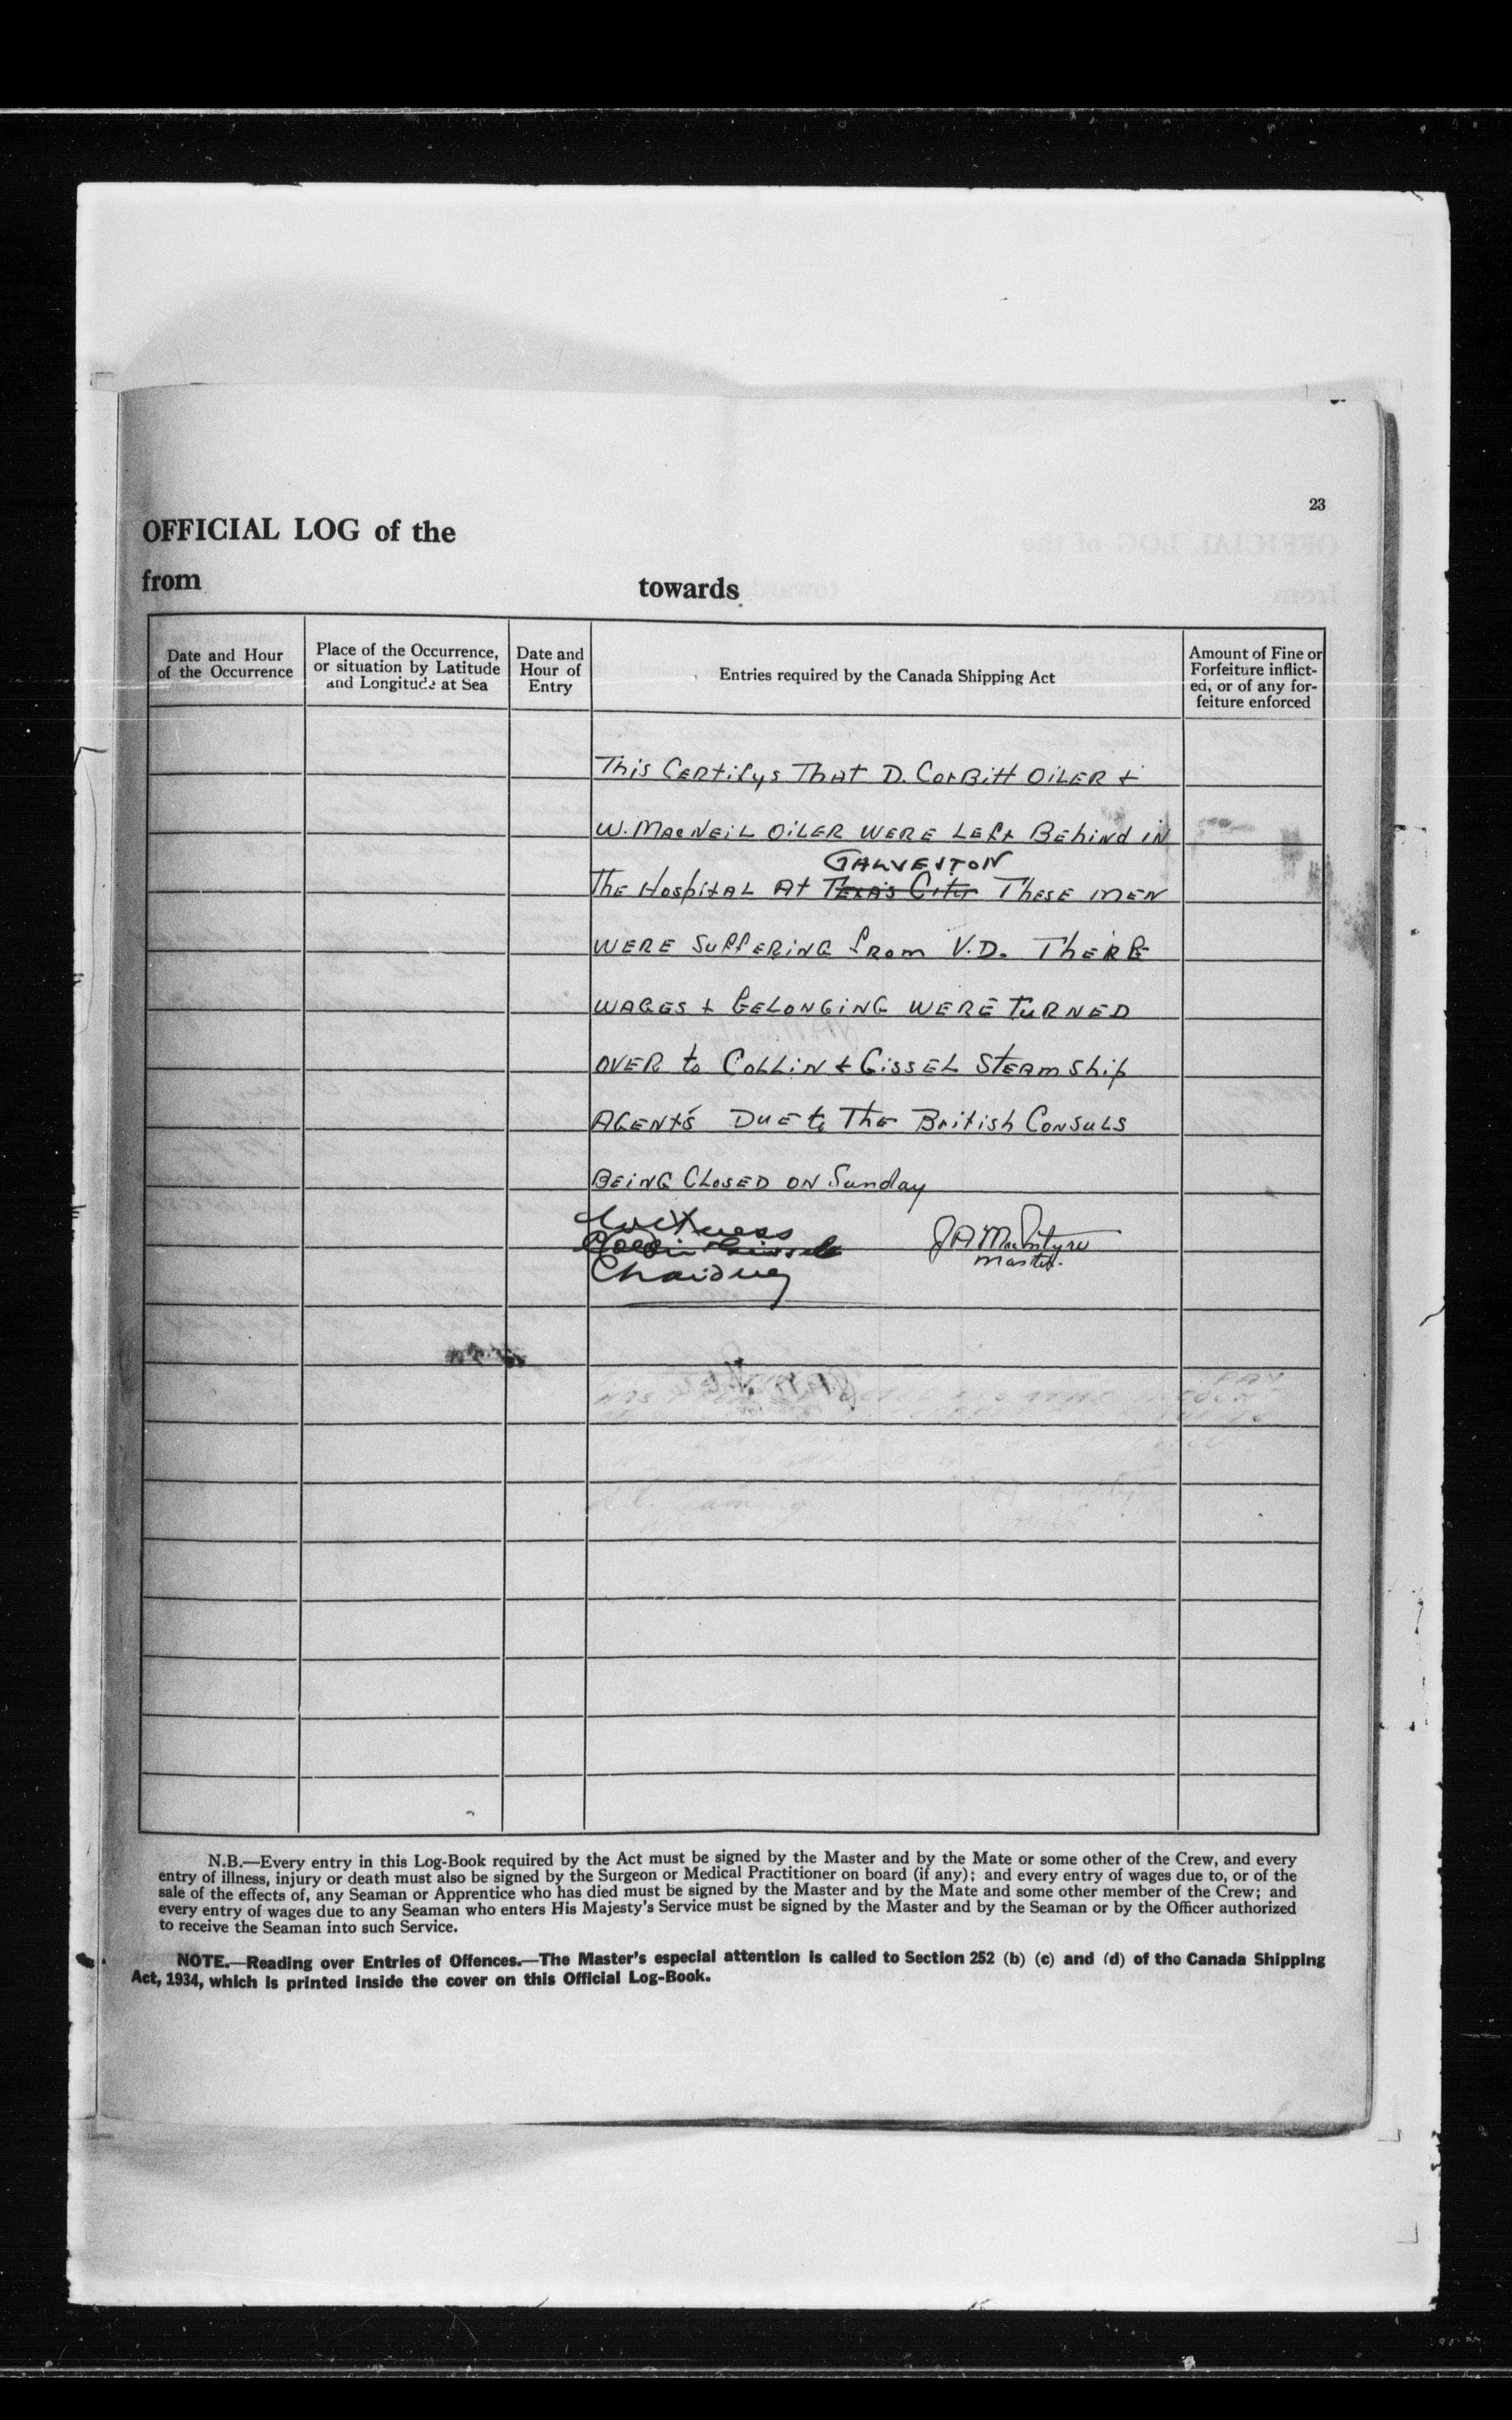 23
OFFICIAL LOG of the
from towards
Date and Hour of the Occurrence
Place of the Occurrence, or situation by Latitude and Longitude at Sea
Date and Hour of Entry
Entries required by the Canada Shipping Act
Amount of Fine or Forfeiture inflicted, or of any forfeiture enforced
This Certifys That D. Corbitt Oiler &
W. MacNeil Oiler were left Behind in
GALVESTON
The Hospital At Texas City These men
were suffering from V.D. There
wages & belonging were turned
over to Collin & Gissel Steam Ship
Agent's Due to The British Consuls
Being Closed on Sunday
Witness
J A MacIntyre
Master.
N.B.—Every entry in this Log-Book required by the Act must be signed by the Master and by the Mate or some other of the Crew, and every
entry of illness, injury or death must also be signed by the Surgeon or Medical Practitioner on board (if any); and every entry of wages due to, or of the
sale of the effects of, any Seaman or Apprentice who has died must be signed by the Master and by the Mate and some other member of the Crew; and
every entry of wages due to any Seaman who enters His Majesty's Service must be signed by the Master and by the Seaman or by the Officer authorized
to receive the Seaman into such Service.
NOTE.—Reading over Entries of Offences.—The Master's especial attention is called to Section 252 (b) (c) and (d) of the Canada Shipping
Act, 1934, which is printed inside the cover on this Official Log-Book.